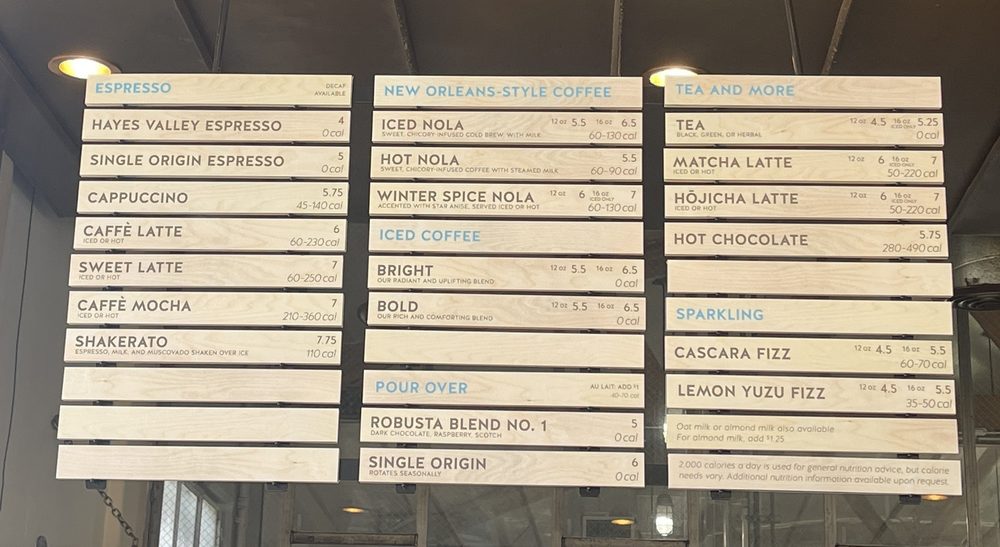 ESPRESSO DECAF AVAILABLE
HAYES VALLEY ESPRESSO 4
0 cal
SINGLE ORIGIN ESPRESSO 5
0 cal
CAPPUCCINO 5.75
45-140 cal
CAFFÈ LATTE 6
ICED OR HOT 60-230 cal
SWEET LATTE 7
ICED OR HOT 60-250 cal
CAFFÈ MOCHA 7
ICED OR HOT 210-360 cal
SHAKERATO 7.75
ESPRESSO, MILK, AND MUSCOVADO SHAKEN OVER ICE 110 cal
NEW ORLEANS-STYLE COFFEE
ICED NOLA 12 oz 5.5 16 oz 6.5
SWEET, CHICORY-INFUSED COLD BREW, WITH MILK 60-130 cal
HOT NOLA 5.5
SWEET, CHICORY-INFUSED COFFEE WITH STEAMED MILK 60-90 cal
WINTER SPICE NOLA 12 oz 6 16 oz ICED ONLY 7
ACCENTED WITH STAR ANISE, SERVED ICED OR HOT 60-130 cal
ICED COFFEE
BRIGHT 12 oz 5.5 16 oz 6.5
OUR RADIANT AND UPLIFTING BLEND 0 cal
BOLD 12 oz 5.5 16 oz 6.5
OUR RICH AND COMFORTING BLEND 0 cal
POUR OVER AU LAIT: ADD $1
40-70 cal
ROBUSTA BLEND NO. 1 5
DARK CHOCOLATE, RASPBERRY, SCOTCH 0 cal
SINGLE ORIGIN 6
ROTATES SEASONALLY 0 cal
TEA AND MORE
TEA 12 oz 4.5 16 oz ICED ONLY 5.25
BLACK, GREEN, OR HERBAL 0 cal
MATCHA LATTE 12 oz 6 16 oz ICED ONLY 7
ICED OR HOT 50-220 cal
HŌJICHA LATTE 12 oz 6 16 oz ICED ONLY 7
ICED OR HOT 50-220 cal
HOT CHOCOLATE 5.75
280-490 cal
SPARKLING
CASCARA FIZZ 12 oz 4.5 16 oz 5.5
60-70 cal
LEMON YUZU FIZZ 12 oz 4.5 16 oz 5.5
35-50 cal
Oat milk or almond milk also available
For almond milk, add $1.25
2,000 calories a day is used for general nutrition advice, but calorie
needs vary. Additional nutrition information available upon request.